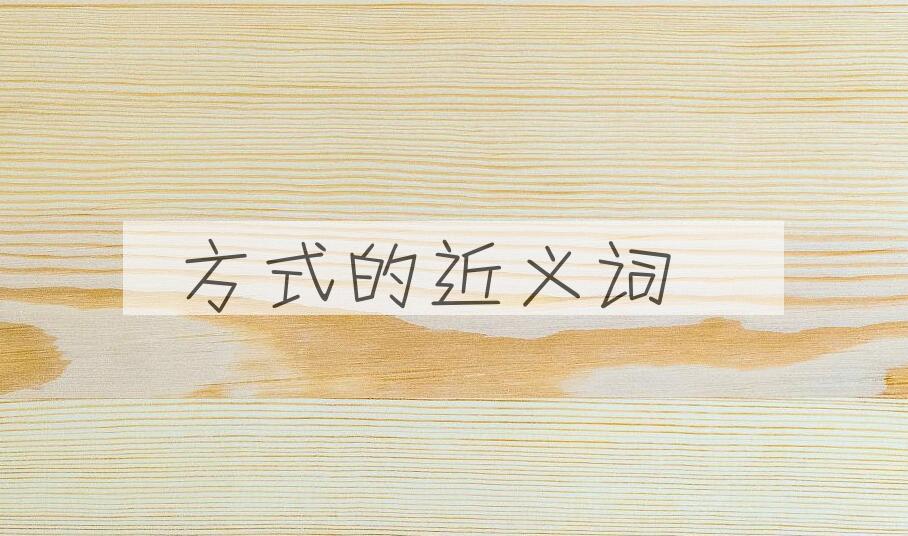 方式的近义词